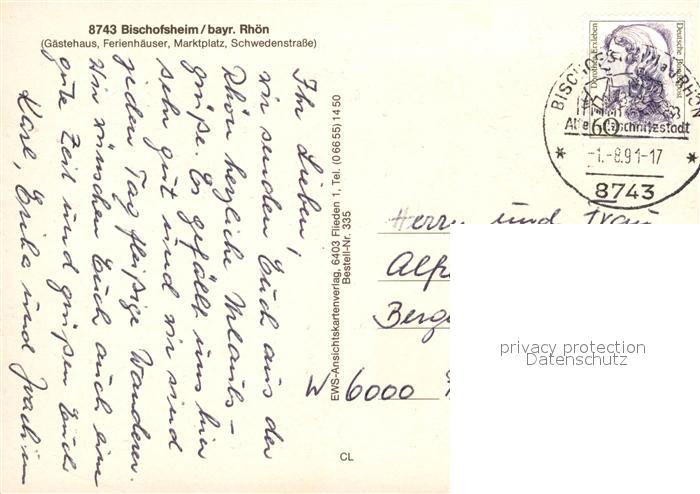 8743 Bischofsheim / bayr. Rhön
(Gästehaus, Ferienhäuser, Marktplatz, Schwedenstraße)
Ihr Lieben,
wir senden Euch aus der
Rhön herzliche Urlaubs-
grüße. Es gefällt uns hier
sehr gut und wir sind
jeden Tag fleißige Wanderer.
Wir wünschen Euch auch eine
gute Zeit und grüßen Euch
Karl, Erika und Joachim
EWS-Ansichtskartenverlag, 6403 Flieden 1, Tel. (0 66 55) 14 50
Bestell-Nr. 335
CL
Dorothea Erxleben
Deutsche Bundespost
60
BISCHOFSHEIM A D RHÖN
Alte Holzschnitzstadt
-1.-8.91-17
8743
Herrn und Frau
Alf
Berge
W 6000
privacy protection
Datenschutz